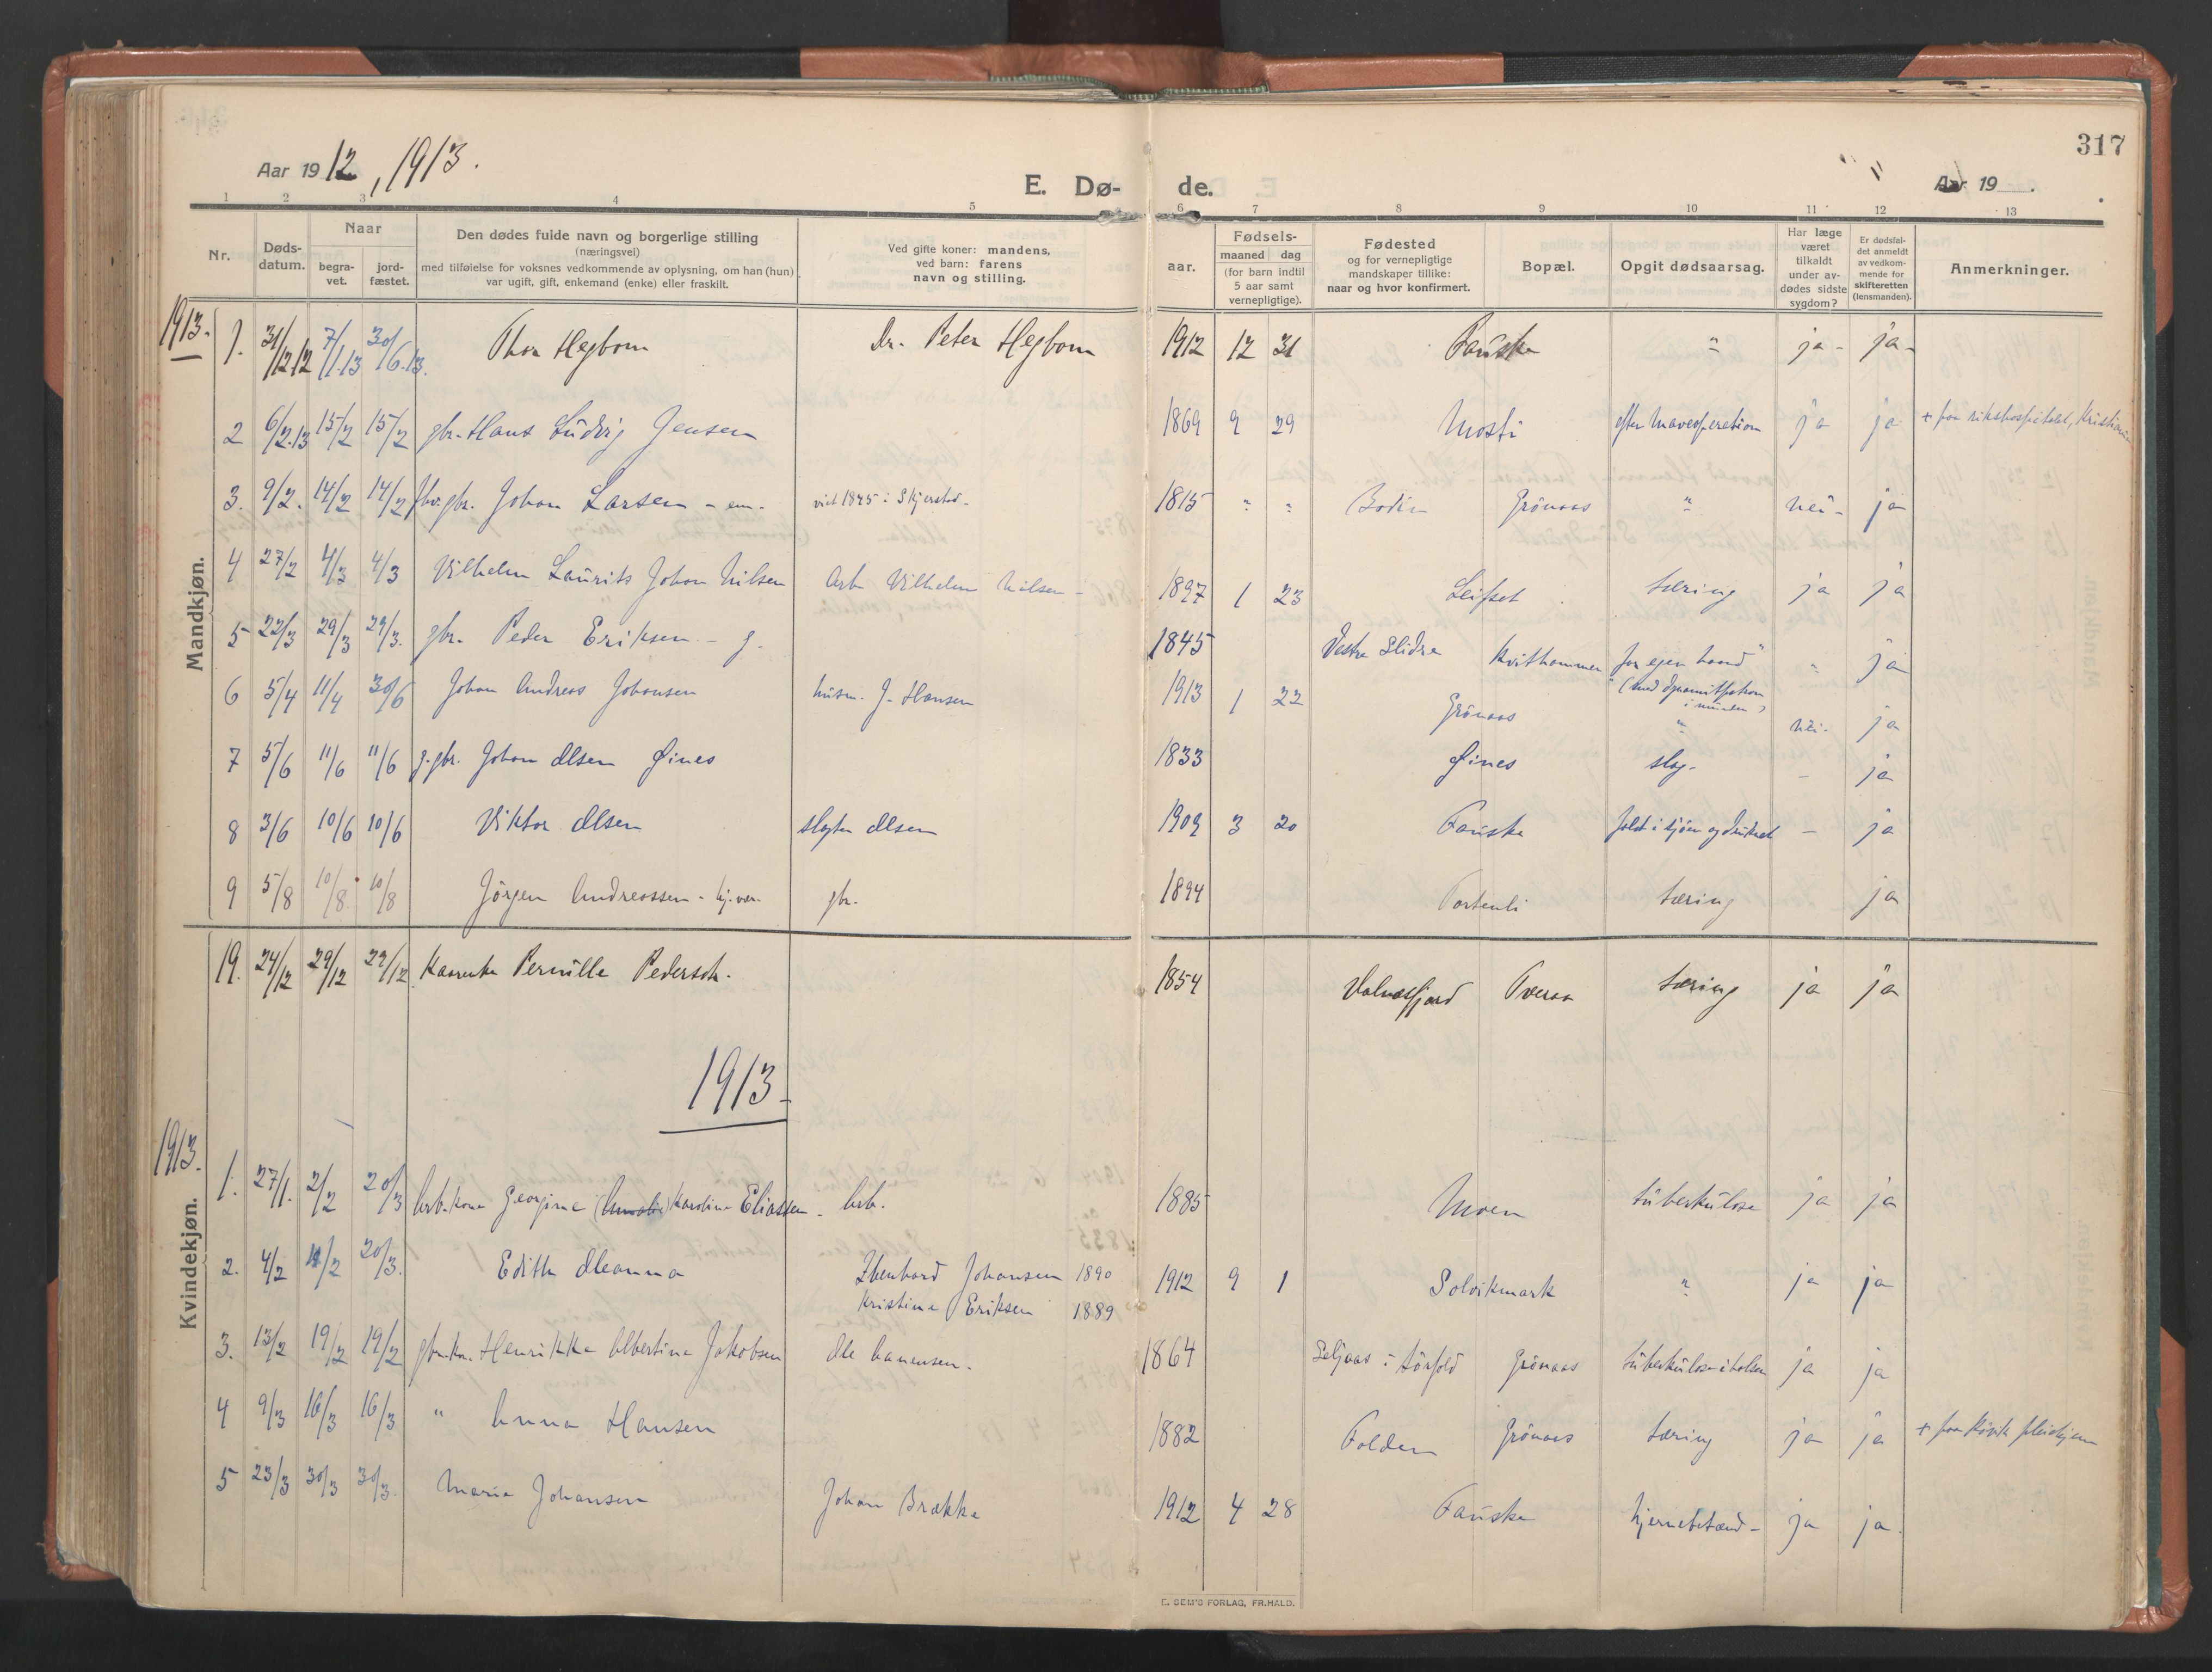 317
Aar 1912, 1913.
E. Dø- de.
Aar 19 .
1 2 3 4 5 6 7 8 9 10 11 12 13
Nr.
Døds-datum.
Naar
begra-vet.
jord-fæstet.
Den dødes fulde navn og borgerlige stilling
(næringsvei)
med tilføielse for voksnes vedkommende av oplysning, om han (hun)
var ugift, gift, enkemand (enke) eller fraskilt.
Ved gifte koner: mandens,
ved barn: farens
navn og stilling.
Fødsels-
aar.
maaned dag
(for barn indtil
5 aar samt
vernepligtige).
Fødested
og for vernepligtige
mandskaper tillike:
naar og hvor konfirmert.
Bopæl.
Opgit dødsaarsag.
Har læge
været
tilkaldt
under av-
dødes sidste
sygdom?
Er dødsfal-
det anmeldt
av vedkom-
mende for
skifteretten
(lensmanden).
Anmerkninger.
Mandkjøn.
1913.
1. 31/12.12 7/1.13 30/6.13. Thor Hegbom Dr. Peter Hegbom 1912 12 31 Fauske " ja - ja -
2 6/2.13 15/2 15/2 gbr. Hans Ludvig Jensen 1869 9 29 Mosti efter maveoperation ja ja + paa rikshospitalet, Kristiania
3. 9/2. 14/2 14/2 fhv. gbr. Johan Larsen - em. viet 1845 i Skjerstad - 1815 " " Bodin Grönaas " nei - ja
4 27/2 4/3 4/3 Vilhelm Laurits Johan Nilsen Arb Vilhelm Nilsen - 1897 1 23 Leifset tæring ja ja
5 22/3 29/3 29/3. gbr. Peder Eriksen - g. 1845 Vestre Slidre Kvithammer for egen haand " ja
(med dynamitpatron
i munden)
6 5/4 11/4 30/6 Johan Andreas Johansen husm. J. Hansen 1913 1 22 Grönaas " nei - ja
7 5/6 11/6 11/6 g. gbr. Johan Olsen Øines 1833 Øines slag - - ja
8 3/6 10/6 10/6 Viktor Olsen slagter Olsen 1909 3 20 Fauske faldt i sjöen og druknet - ja
9 5/8 10/8 10/8 Jörgen Andreassen - hj. vær. gbr. 1894 Fortenli tæring ja
Kvindekjøn.
19. 24/12 29/12 29/12 Pernille Pedersdr. 1854 Valnesfjord Tveraa tæring ja ja
1913 -
1913.
1. 27/1. 2/2 20/3 Arb. kone Georgine Karoline Eliassen - Arb. 1885 Moen tuberkulose ja ja
2. 4/2 11/2 20/3. Edith Oleanna Ebenhard Johansen 1890 1912 9 1 Solvikmark " ja ja
Kristine Eriksen 1889
3. 13/2 19/2 19/2 gbr. kn. Henrikka Albertine Jakobsen Ole Hanensen. 1864 Seljaas i Sörfold Grönaas tuberkulose i halsen ja ja
4 9/3 16/3 16/3 " Anna Hansen 1882 Folden Grönaas tæring ja ja + paa Rövik pleiehjem
5 23/3 30/3 30/3. Marie Johansen Johan Brække 1912 4 28 Fauske hjernebetænd - ja ja
E. SEM'S FORLAG, FR.HALD.